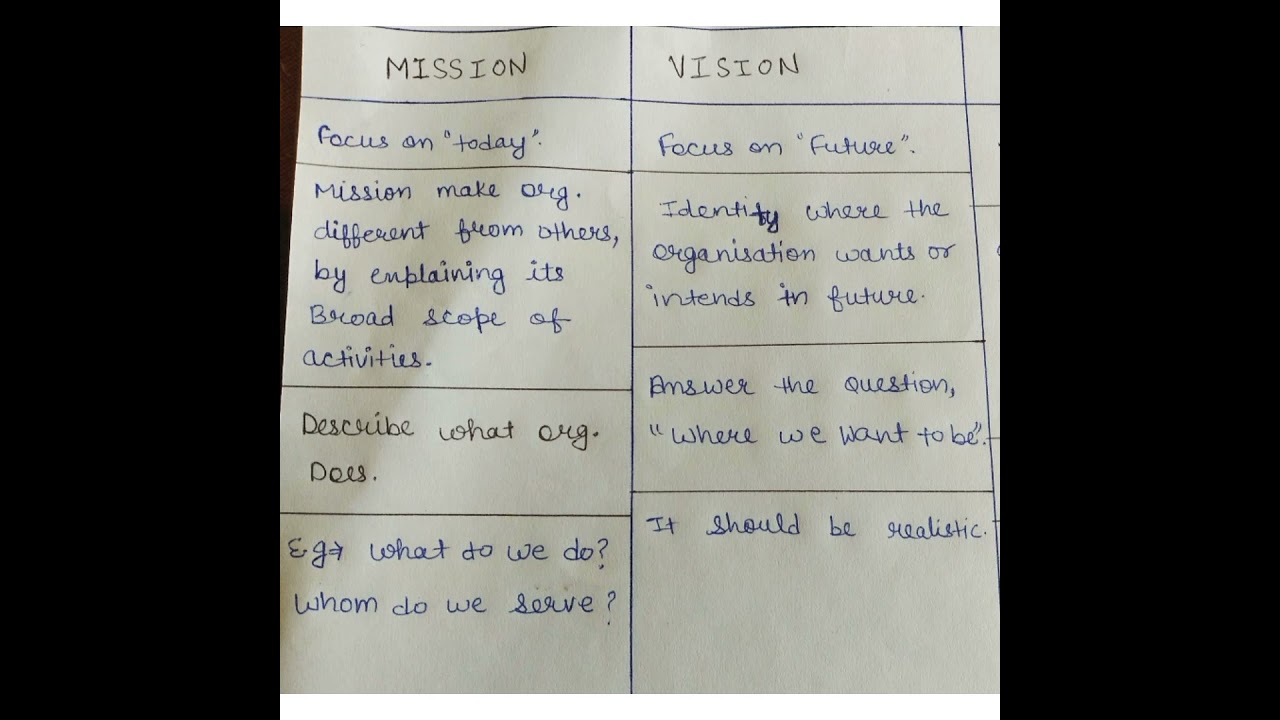 MISSION
VISION
Focus on "today".
Focus on "Future".
Mission make org.
different from others,
by enplaining its
Broad scope of
activities.
Identity where the
organisation wants or
intends in future.
Describe what org.
Does.
Answer the question,
"where we want to be".
Eg→ what do we do?
Whom do we serve?
It should be realistic.